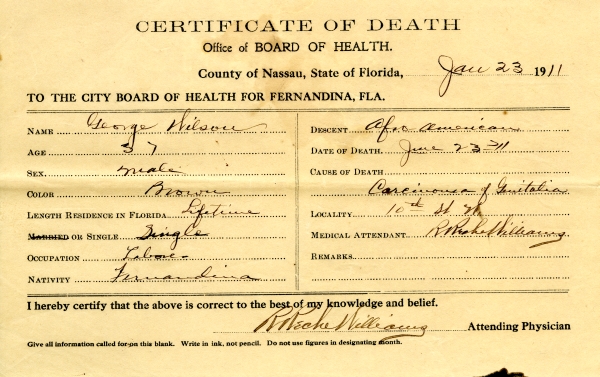 CERTIFICATE OF DEATH
Office of BOARD OF HEALTH.
County of Nassau, State of Florida, Jan 23 1911
TO THE CITY BOARD OF HEALTH FOR FERNANDINA, FLA.
NAME George Wilson
AGE 37
SEX male
COLOR Brown
LENGTH RESIDENCE IN FLORIDA Lifetime
MARRIED OR SINGLE Single
OCCUPATION Labore
NATIVITY Fernandina
DESCENT Afro American
DATE OF DEATH 23 11
CAUSE OF DEATH
Carcinoma of Genitalia
LOCALITY 10th St
MEDICAL ATTENDANT Williams
REMARKS
I hereby certify that the above is correct to the best of my knowledge and belief.
Williams Attending Physician
Give all information called for on this blank. Write in ink, not pencil. Do not use figures in designating month.